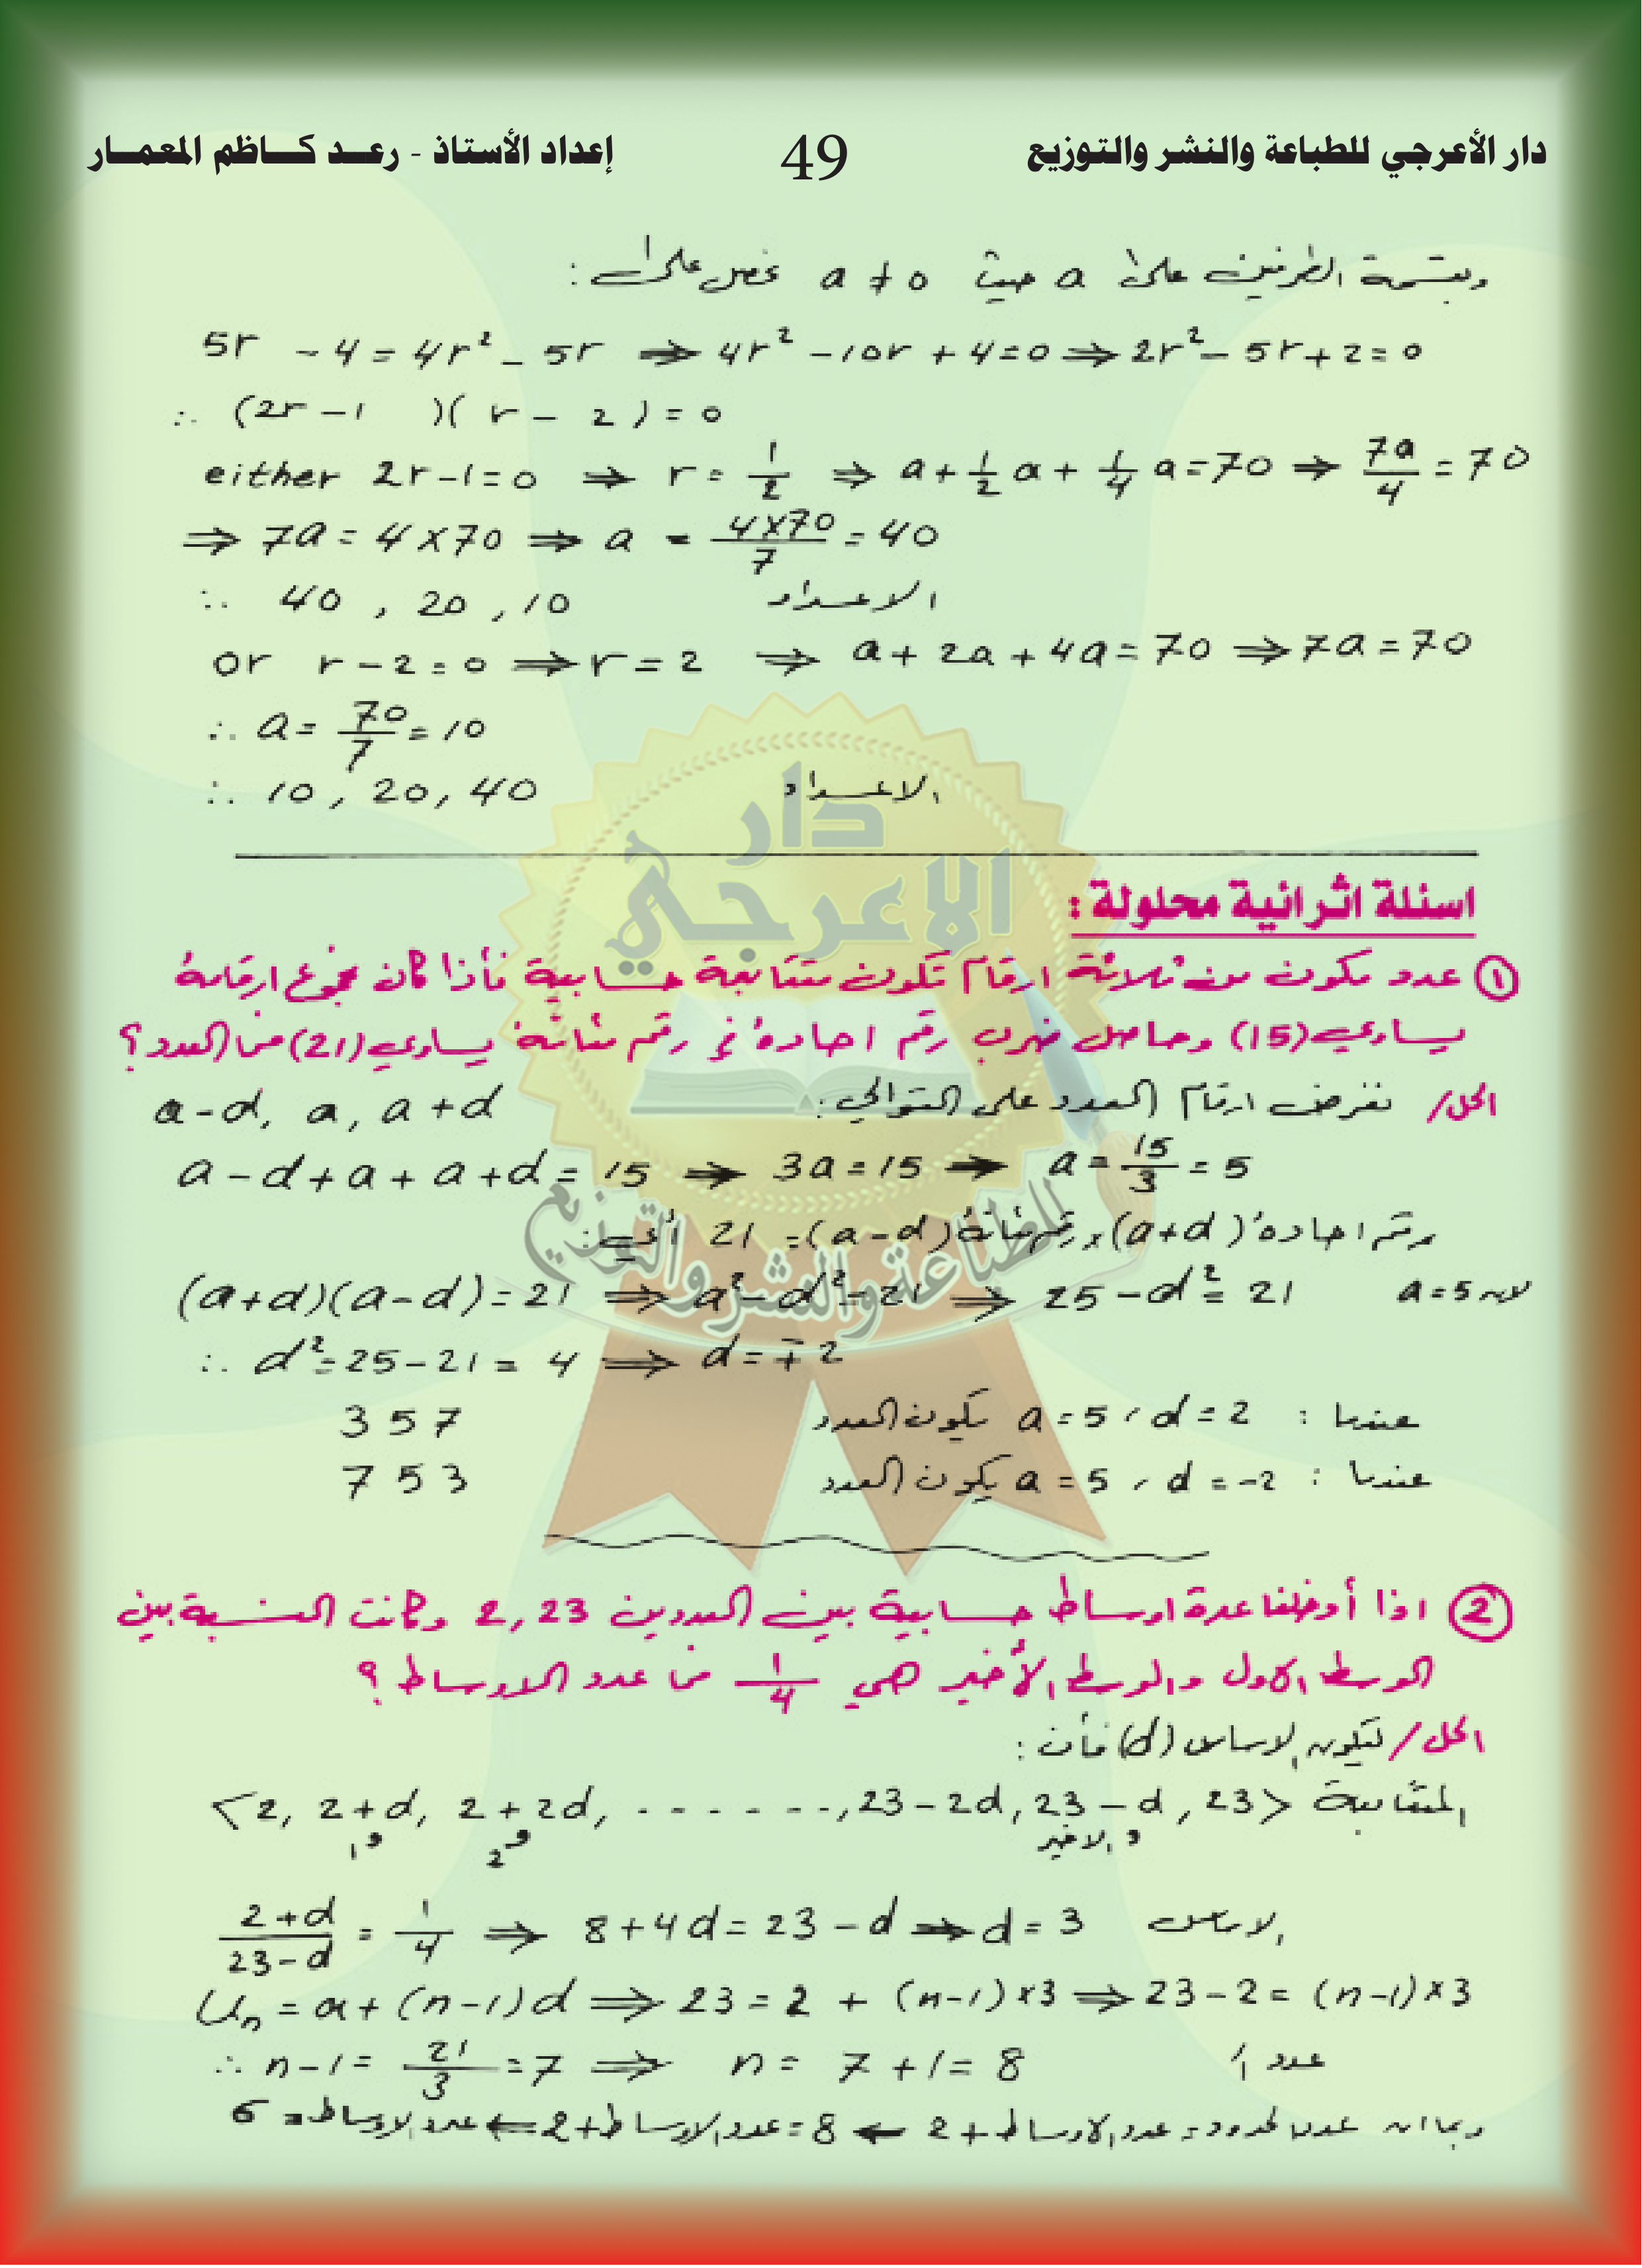 دار الأعرجي للطباعة والنشر والتوزيع 49 إعداد الأستاذ - رعـد كـاظم المعمـار
وبقسمة الطرفين على a حيث a ≠ 0 نحصل على :
5r - 4 = 4r² - 5r ⇒ 4r² - 10r + 4 = 0 ⇒ 2r² - 5r + 2 = 0
∴ (2r - 1)(r - 2) = 0
either 2r - 1 = 0 ⇒ r = 1/2 ⇒ a + 1/2 a + 1/4 a = 70 ⇒ 7a/4 = 70
⇒ 7a = 4 × 70 ⇒ a = 4×70/7 = 40
∴ 40 , 20 , 10 الاعداد
or r - 2 = 0 ⇒ r = 2 ⇒ a + 2a + 4a = 70 ⇒ 7a = 70
∴ a = 70/7 = 10
∴ 10 , 20 , 40 الاعداد
دار
الاعرجي
للطباعة والنشر والتوزيع
اسئلة اثرائية محلولة :
① عدد مكون من ثلاثة ارقام تكون متتابعة حسابية فأذا كان مجموع ارقامه
يساوي (15) وحاصل ضرب رقم احاده في رقم مئاته يساوي (21) فما العدد ؟
الحل/ نفرض ارقام العدد على التوالي : a-d, a, a+d
a - d + a + a + d = 15 → 3a = 15 → a = 15/3 = 5
رقم احاده (a+d) × رقم مئاته (a-d) = 21 أي :
(a+d)(a-d) = 21 ⇒ a² - d² = 21 ⇒ 25 - d² = 21 لان a = 5
∴ d² = 25 - 21 = 4 ⇒ d = ∓2
عندما : a = 5 , d = 2 يكون العدد 3 5 7
عندما : a = 5 , d = -2 يكون العدد 7 5 3
② اذا أدخلنا عدة اوساط حسابية بين العددين 2, 23 وكانت النسبة بين
الوسط الاول والوسط الأخير هي 1/4 فما عدد الاوساط ؟
الحل/ ليكون الاساس (d) فأن :
المتتابعة <2, 2+d, 2+2d, . . . . . . ., 23-2d, 23-d, 23>
و1 و2 و الاخير
2+d/23-d = 1/4 ⇒ 8 + 4d = 23 - d → d = 3 الاساس
Un = a + (n-1)d ⇒ 23 = 2 + (n-1)×3 ⇒ 23 - 2 = (n-1)×3
∴ n - 1 = 21/3 = 7 ⇒ n = 7 + 1 = 8 عدد
وبما ان عدد الحدود = عدد الاوساط + 2 ← 8 = عدد الاوساط + 2 ⇐ عدد الاوساط = 6